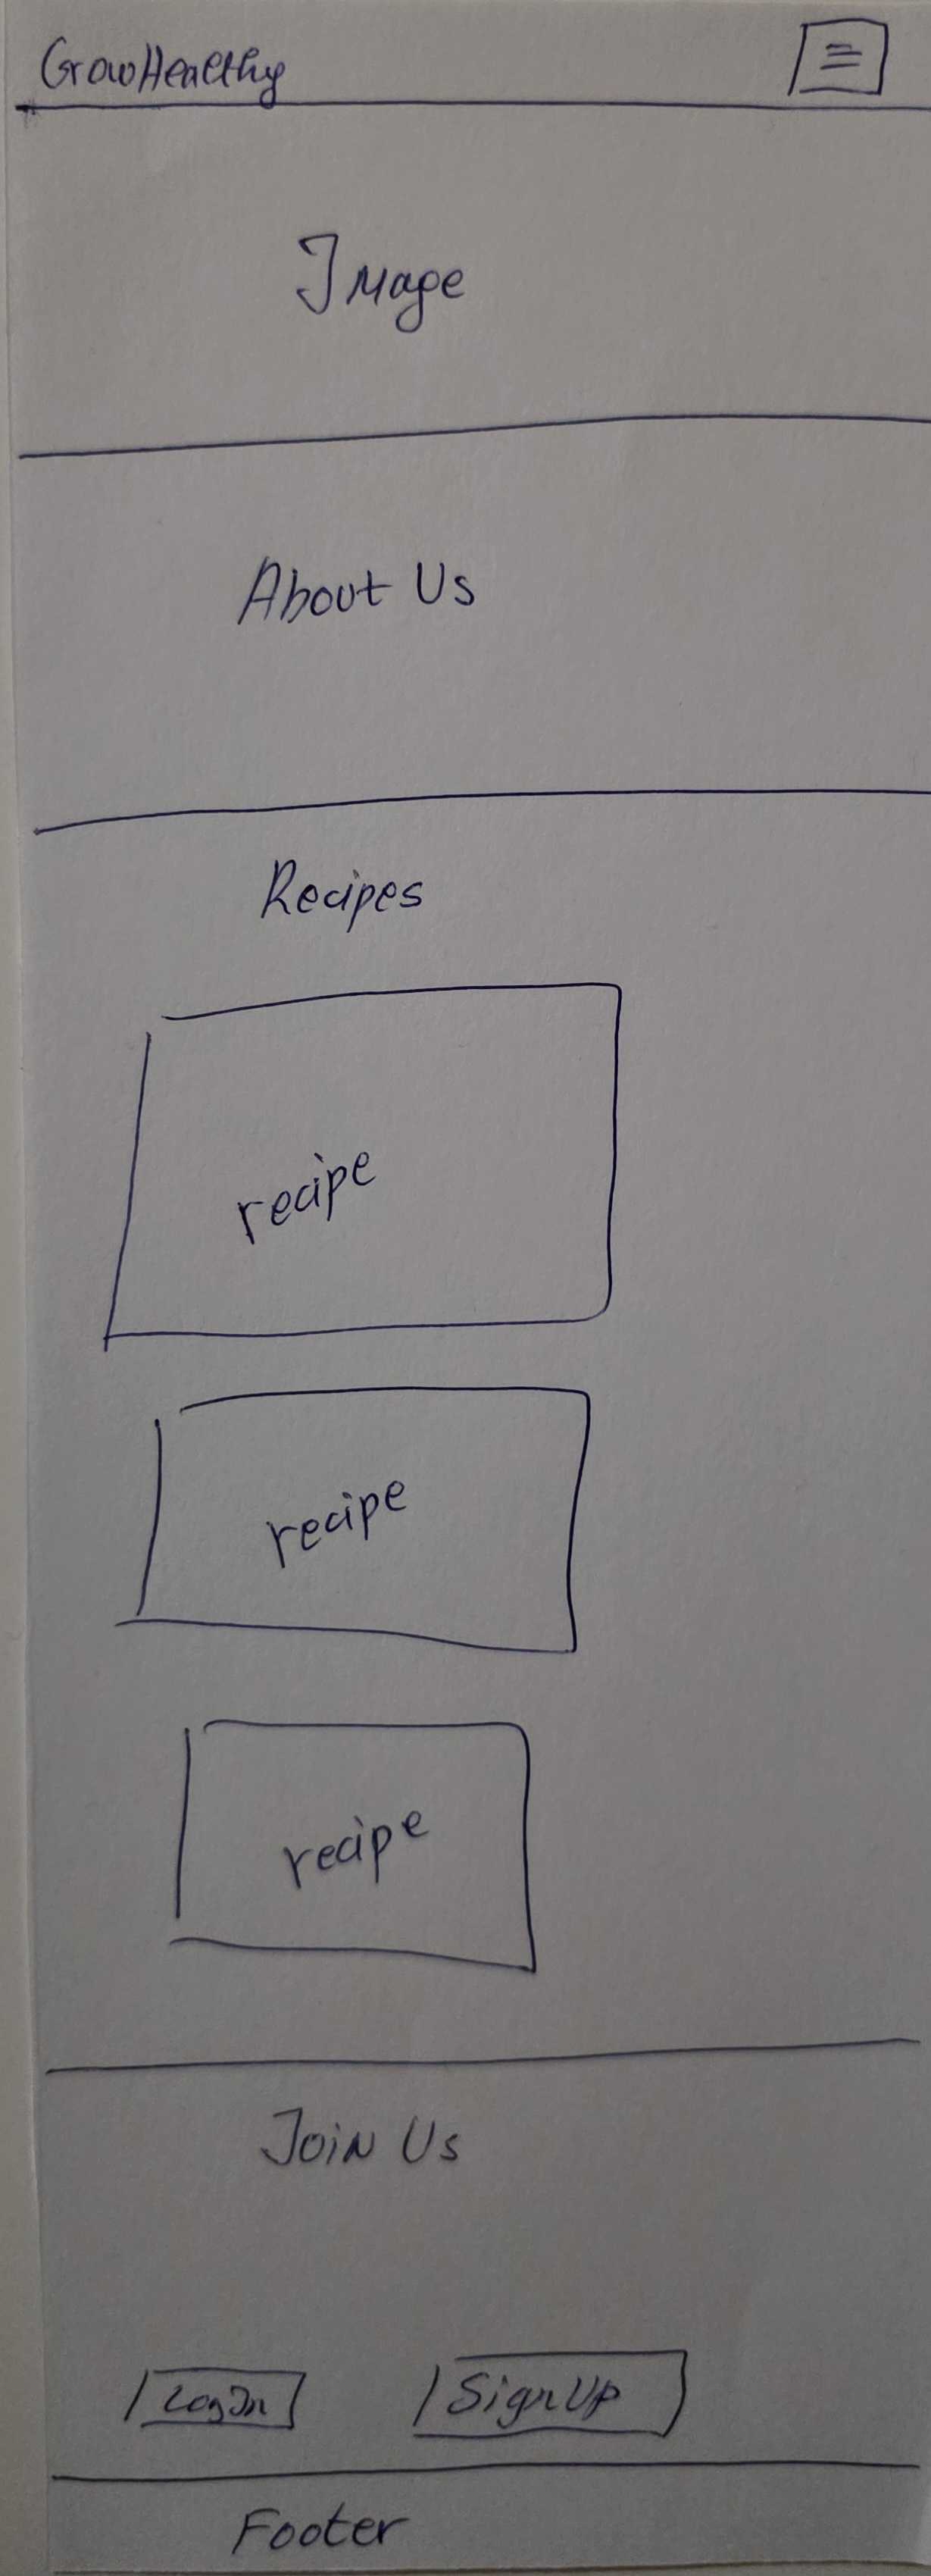 GrowHealthy
Image
About Us
Recipes
recipe
recipe
recipe
Join Us
LogIn SignUp
Footer